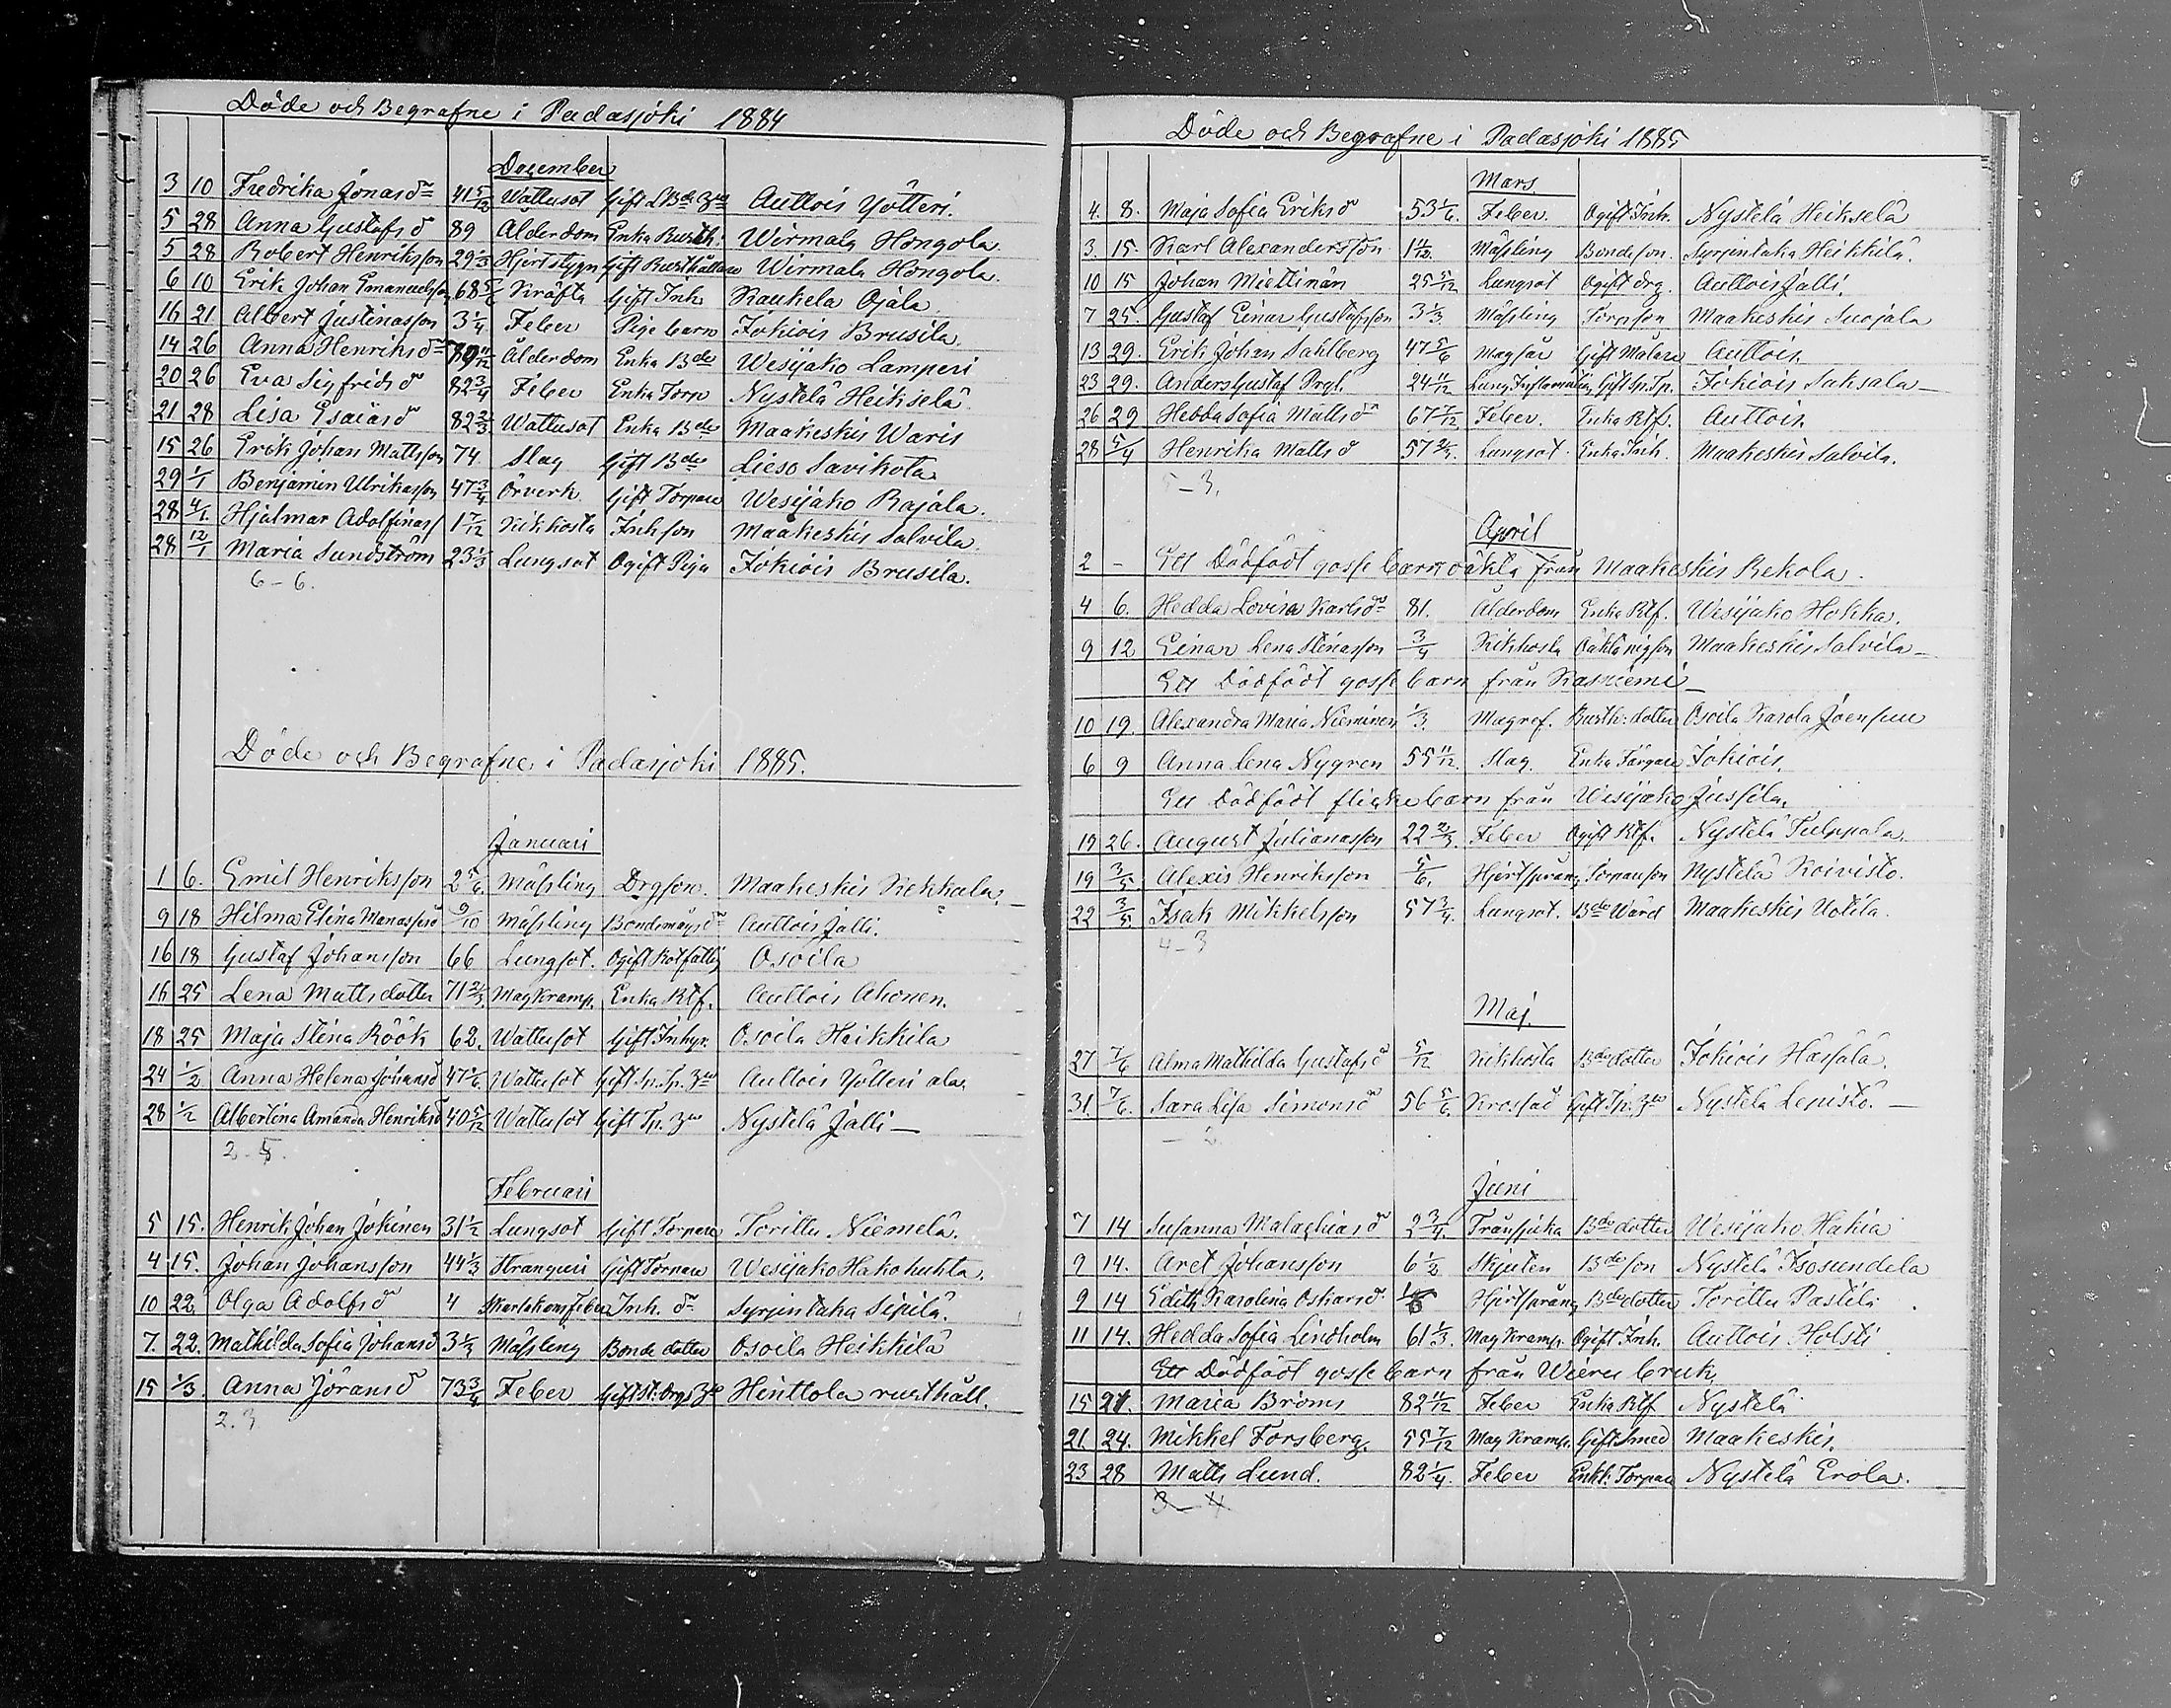 Döde och Begrafne i Padasjoki 1884
Dezember
3 10 Fredrika Jonasdr 41 5/12 Wattusot Gift LBde Hu Auttois Yötteri.
5 28 Anna Gustafsd 89 Ålderdom Enka Rusth. Wirmala Hongola
5 28 Robert Henriksson 29 1/3 Hjertstygn Gift Rusthållare Wirmala Hongola.
6 10 Erik Johan Emanuelsson 68 5/6 Kräfta Gift Inh Kaukela Ojala
16 21 Albert Justinasson 3 1/4 Feber Pige barn Jokiois Brusila
14 26 Anna Henriksdr 89 11/12 Ålderdom Enka Bde Wesijako Lamperi
20 26 Eva Sigfridsd 82 3/4 Feber Enka Torp Nystelä Heikselä
21 28 Lisa Esaiasd 82 2/3 Wattusot Enka Bde Maakeskis Waris
15 26 Erik Johan Mattsson 74 Slag Gift Bde Lieso Savikota
29 1/1 Benjamin Ulrikasson 47 3/4 Örverk Gift Torpare Wesijako Rajala.
28 4/1 Hjalmar Adolfinass 1 7/12 Kikhosta Inhson Maakeskis Salvila
28 12/1 Maria Sundström 23 1/3 Lungsot Ogift Piga Jokiois Brusila.
6-6.
Döde och Begrafne i Padasjoki 1885.
Januari
1 6. Emil Henriksson 2 5/6. Mässling Drgson. Maakeskis Kekkala.
9 18 Hilma Elina Manassesd 9/10 Mässling Bondemågsdr Auttois Jalli.
16 18 Gustaf Johansson 66 Lungsot. Ogift Rotfattig Osoila
16 25 Lena Mattsdotter 71 2/3 Magkramp. Enka Rtf. Auttois Ahonen.
18 25 Maja Stina Röök 62. Wattusot Gift Inhyr. Osoila Heikkila
24 1/2 Anna Helena Johansd 47 5/6 Wattusot Gift Sp.Tp. Hu Auttois Yötteri ala.
28 1/2 Albertina Amanda Henriksd 40 5/12 Wattusot Gift Tp. Hu Nystelä Jalli —
2-5.
Februari
5 15. Henrik Johan Jokinen 31 1/2 Lungsot Gift Torpare Torittu Niemelä.
4 15. Johan Johansson 44 1/3 Stranguri Gift Torpare Wesijako Hakohuhta.
10 22. Olga Adolfsd 4 Skarlakansfeber Inh. dr Syrjentaka Sipilä.
7. 22. Mathilda Sofia Johansd 3 1/2 Mässling Bonde dotter Osoila Heikkilä
15 1/3. Anna Jöransd 73 3/4 Feber Gift St. Drgs Hu Hinttola rusthåll.
2.3
Döde och Begrafne i Padasjoki 1885
Mars
4. 8. Maja Sofia Eriksd 53 1/6. Feber. Ogift Inh. Nystelä Heikselä
3. 15. Karl Alexandersson 1 1/12. Mässling Bondeson. Syrjentaka Heikkilä.
10 15 Johan Miettinän 25 5/12 Lungsot Ogift drg. Auttois Jalli.
7 25. Gustaf Einar Gustafsson 3 1/3 Mässling Torpson Maakeskis Suojala
13 29. Erik Johan Sahlberg 47 5/6 Magsår Gift Målare Auttois.
23 29. Anders Gustaf Prgl. 24 11/12 Lung Inflamation Gift Sp.Tp. Jokiois Saksala —
26 29 Hedda Sofia Mattsd 67 1/12 Feber. Enka Rtf. Auttois
28 5/4 Henrika Mattsd 57 2/3. Lungsot Enka Inh. Maakeskis Salvila.
5-3.
April
2 - Ett Dödfödt gosse barn oäkta från Maakeskis Rekola.
4 6. Hedda Lovisa Karlsdr 81. Ålderdom Enka Rtf. Wesijako Hokka.
9 12 Einar Lena Stinasson 3/4 Kikhosta Oäkta pigson Maakeskis Salvila —
Ett Dödfödt gosse barn från Kasniemi —
10 19. Alexandra Maria Nieminen 1/3. Magref. Rusth: dotter Osoila Karola Joensuu
6 9 Anna Lena Nygren 55 11/12. Slag. Enka Färgare Jokiois.
Ett Dödfödt flicke barn från Wesijako Jussila.
19 26. August Julianasson 22 2/3. Feber Ogift Rtf. Nystelä Tulppala.
19 3/5. Alexis Henriksson 5/6. Hjertsprång Torpareson Nystelä Koivisto.
22 3/5. Isak Mikkelsson 57 3/4. Lungsot. Bde Wärd Maakeskis Uotila.
4-3
Maj.
27 7/6 Alma Mathilda Gustafsd 5/12 Kikhosta Bde dotter Jokiois Hassala.
31. 7/6. Sara Lisa Simonsd 56 5/6. Krossad Gift Tp. Hu Nystelä Lepistö. —
- 2.
Juni
7 14 Susanna Malachiasd 2 3/4. Trånsjuka Bde dotter Wesijako Hakia
9 14. Aret Johansson 6 1/2 Skjuten Bde son Nystelä Isosundela
9 14 Edith Karolina Oskarsd. 1/6 Hjertsprång Bde dotter Torittu Pastila
11 14. Hedda Sofia Lindholm 61 1/3. Magkramp. Ogift Inh. Auttois Holsti
Ett Dödfödt gosse barn från Wieru bruk.
15 21. Maria Broms 82 11/12 Feber Enka Rtf Nystelä
21. 24. Mikkel Forsberg. 55 7/12 Magkramp. Gift Smed Maakeskis.
23 28 Matts Lund. 82 1/4. Feber Enkl. Torpare Nystelä Erola.
3-4.